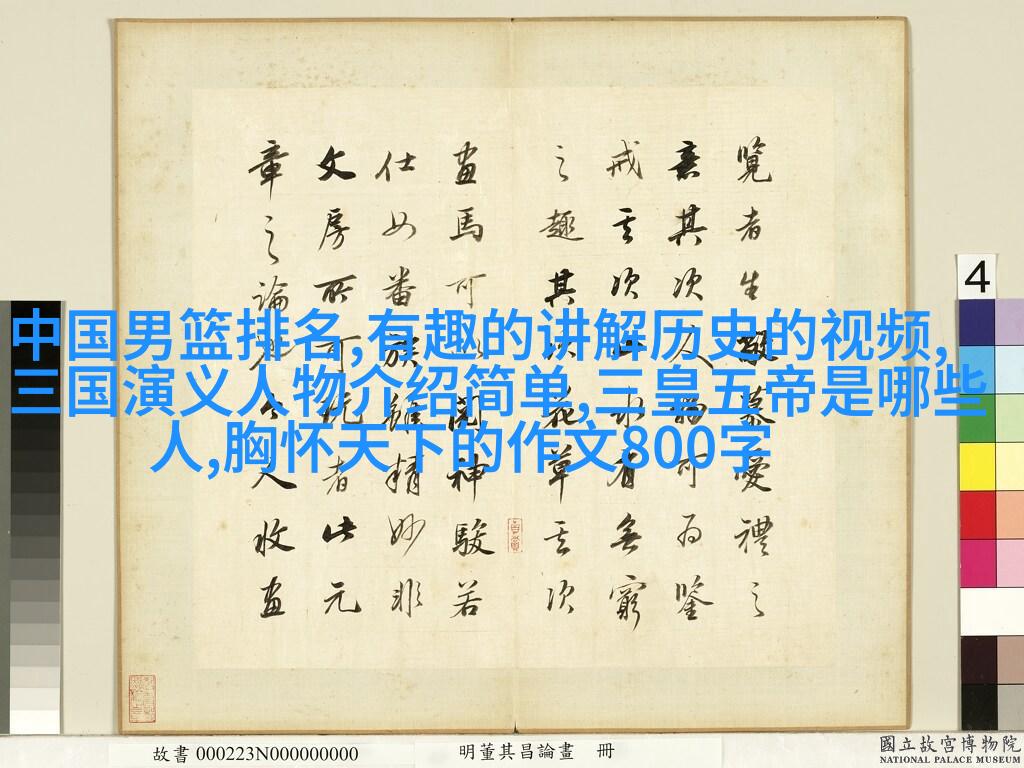 覽者生敬慕愛禮之
意其次人物可為鑒
戒其次山水有無窮
之趣其次花草其次
畫馬可以閱神駿若
仕女番族雖精妙非
文房所可玩者此元
章之論也今人收畫
中国男篮排名,有趣的讲解历史的视频,
三国演义人物介绍简单,三皇五帝是哪些
人,胸怀天下的作文800字
4
故書 000223N000000000
明董其昌論畫 冊
國立故宮博物院
NATIONAL PALACE MUSEUM